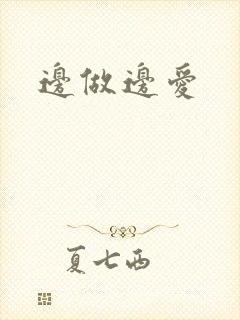 邊做邊愛
夏七西